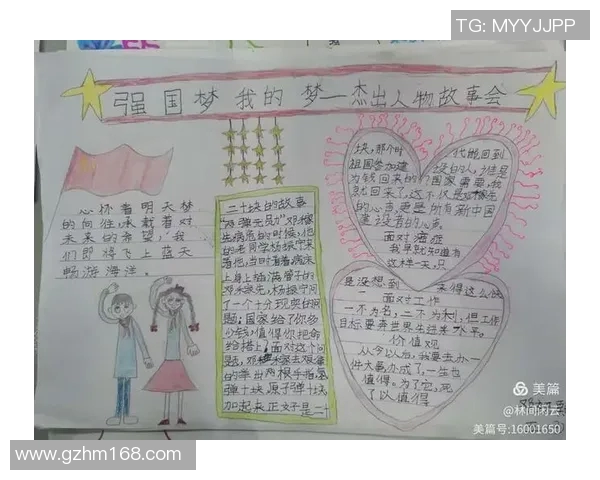 TG: MYYJJPP
强国梦 我的梦—杰出人物故事会
心怀着明天梦
的向往,承载着对
未来的希望,我
们即将飞上蓝天
畅游海洋。
二十块的故事
病危的时候,他
的老同学杨振宁来
着他,当时看着病床
上身上插满管子的
杨振宁问
了一个十分现实的问
题:国家给了你多
少钱,值得你把命
给搭上,面对这个问
题,
弹十块,原子弹十块
加起来正好是二十
块,那个时代能回到
祖国参加建设的人,谁是
为钱回来的?国家需要,我
就回来了,这不仅是邓稼先
的心声,更是所有新中国
建设者的心声
面对癌症
我早就知道有
这样一天,只
是没想到来得这么快
面对工作
一不为名,二不为利,但工作
目标要奔世界先进水平。
价值观
从今以后,我要去办一
件大事,办成了,一生也
值得。为了它,死
了以值得
美篇
@林间闲云
美篇号:16001650
www.gzhm168.com